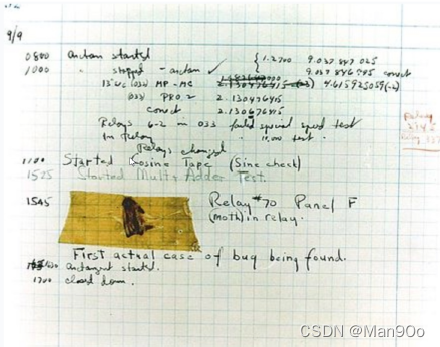 9/9
0800 antan started
1000 " stopped - antan ✓ { 1.2700 9.037 847 025
9.037 846 995 correct
13"uc (032) MP-MC 2.130476415 (-3) 4.615925059(-2)
(033) PRO 2 2.130476415
correct 2.130676415
Relays 6-2 in 033 failed special speed test
in relay " test.
Relays changed
1100 Started Cosine Tape (Sine check)
1525 Started Mult+Adder Test.
1545 Relay #70 Panel F
(moth) in relay.
First actual case of bug being found.
antangent started.
1700 closed down.
Relay
CSDN @Man9Oo